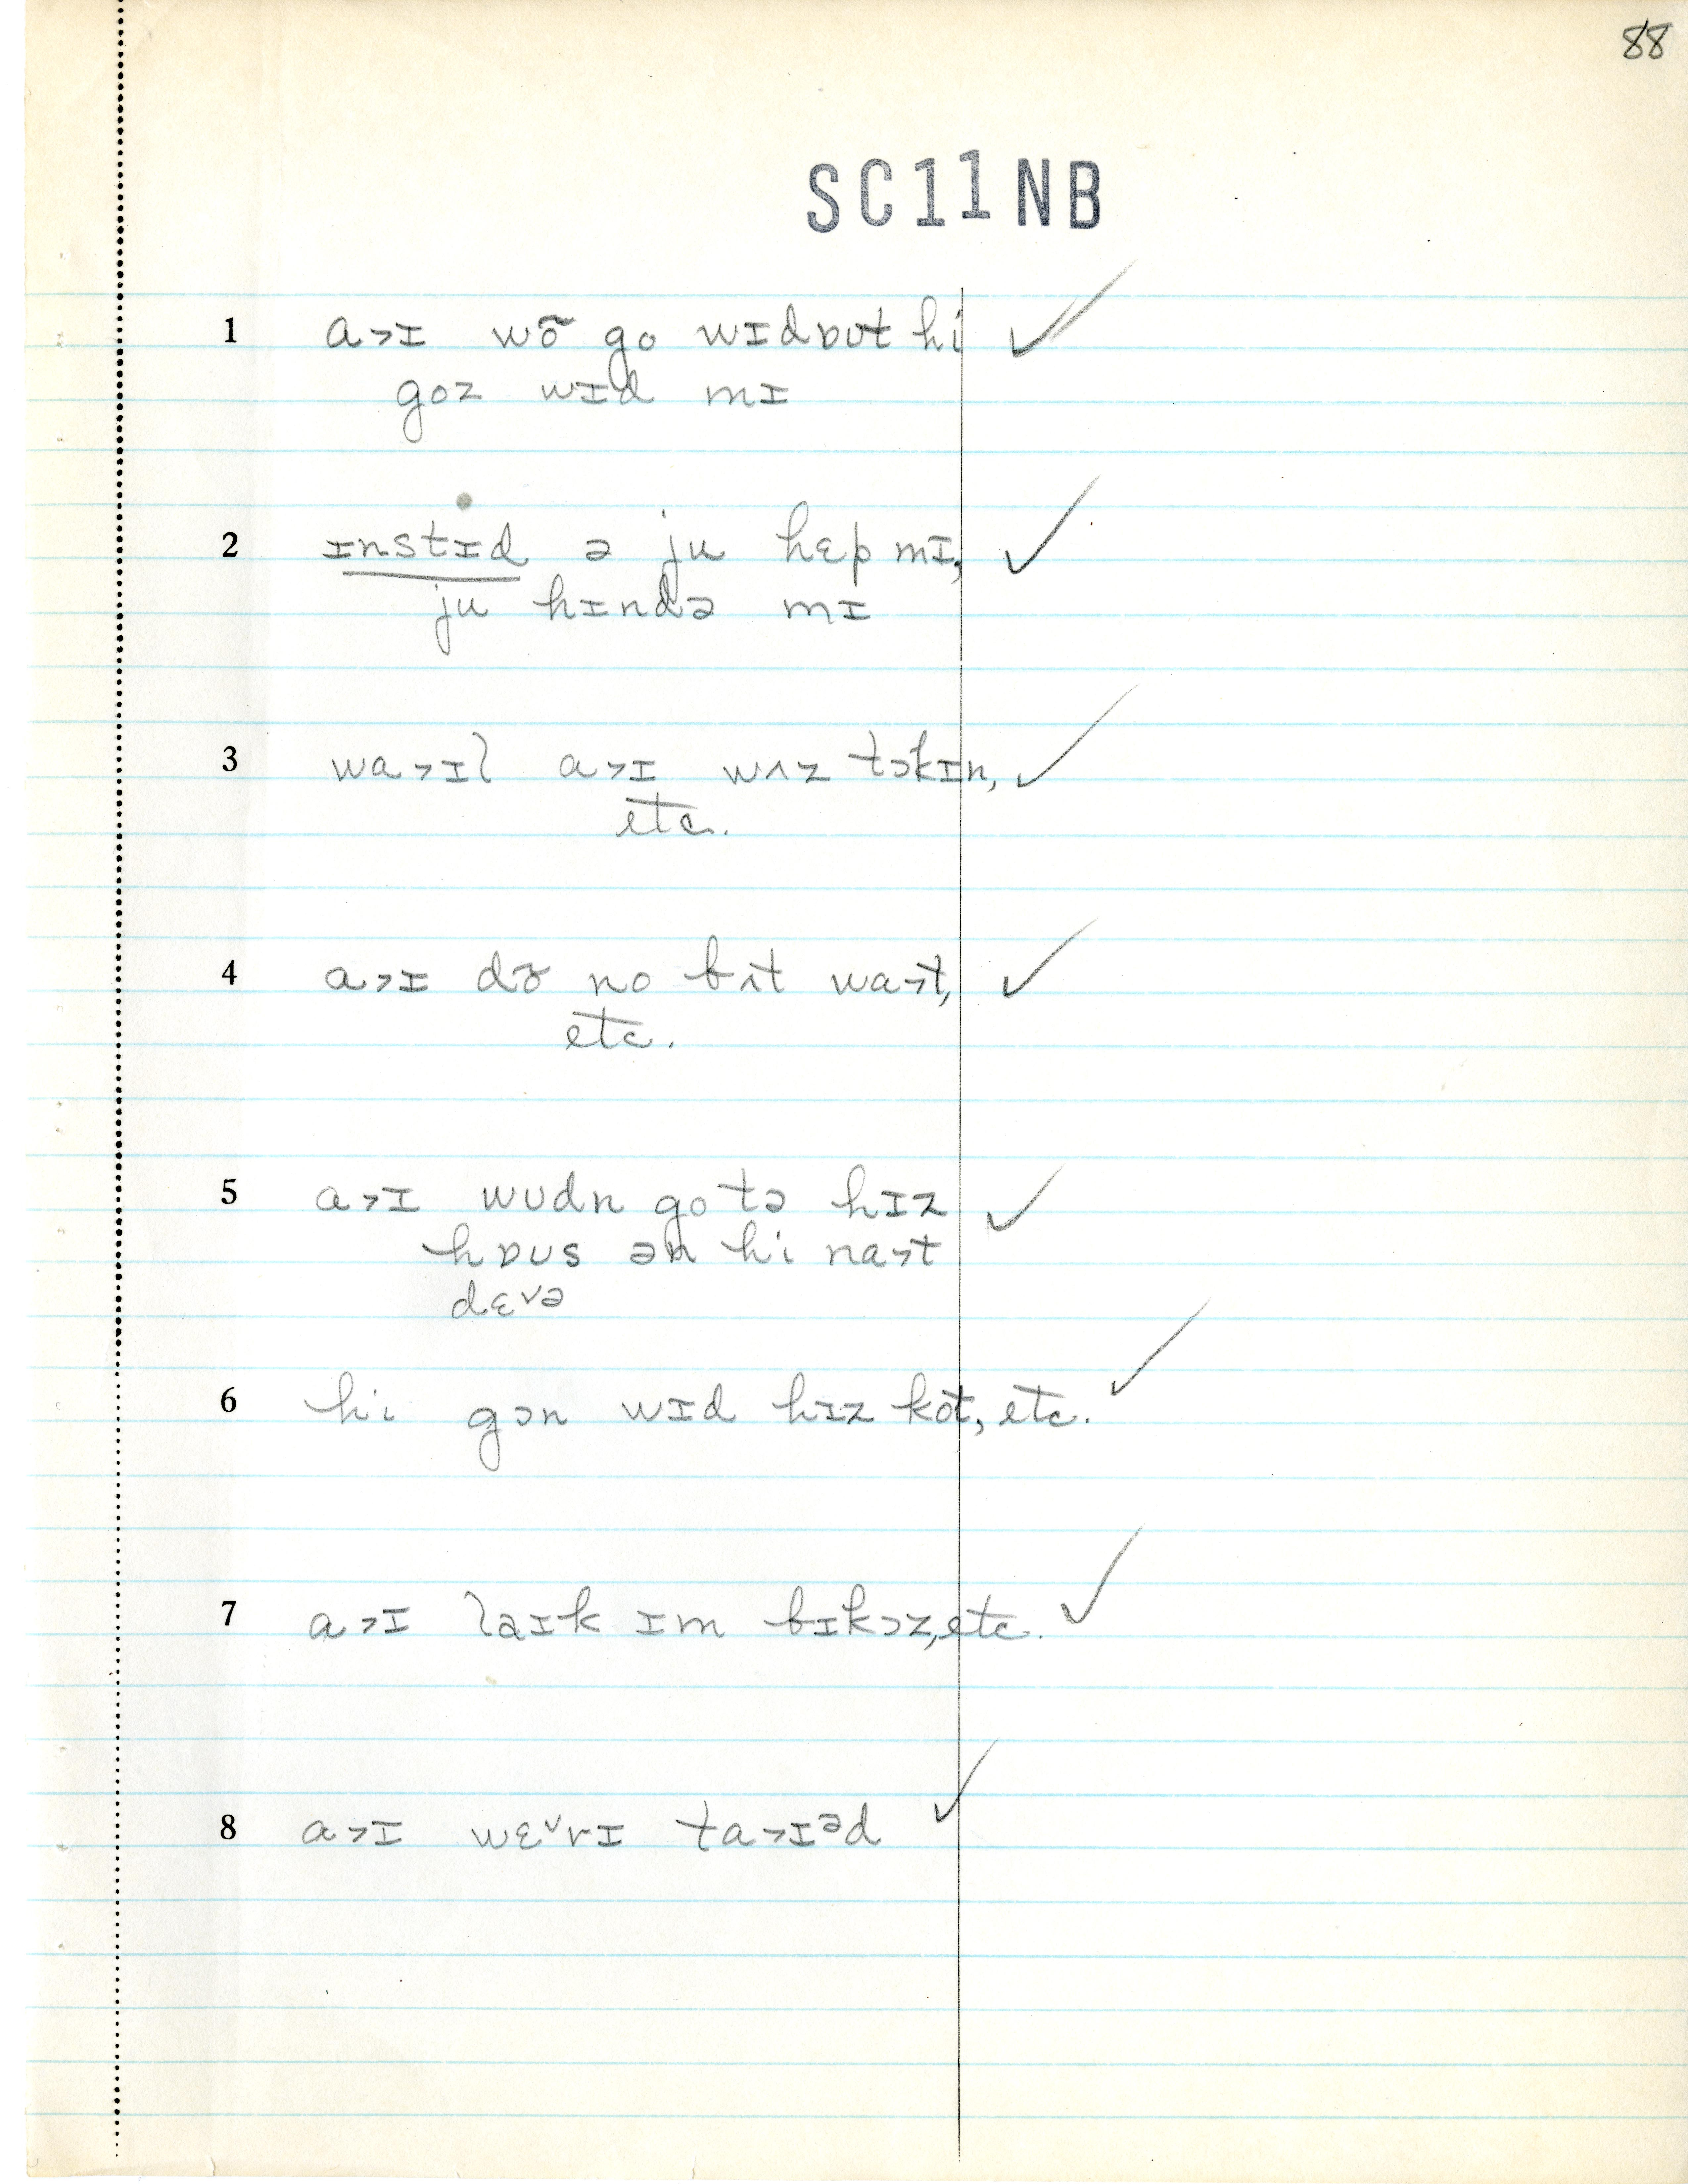 88
SC11NB
1 a˃ɪ wõ go wɪdɒʊt hi ✓
goz wɪd mɪ
2 ɪnstɪd ə ju hɛp mɪ, ✓
ju hɪndə mɪ
3 wa˃ɪl a˃ɪ wʌz tɔkɪn, ✓
etc.
4 a˃ɪ dõ no bʌt wa˃t, ✓
etc.
5 a˃ɪ wʊdn go tə hɪz ✓
hɒʊs ən hi na˃t
dɛ˅ə
6 hi gɔn wɪd hɪz kot, etc. ✓
7 a˃ɪ laɪk ɪm bɪkɔz, etc. ✓
8 a˃ɪ wɛ˅rɪ ta˃ɪᵊd ✓